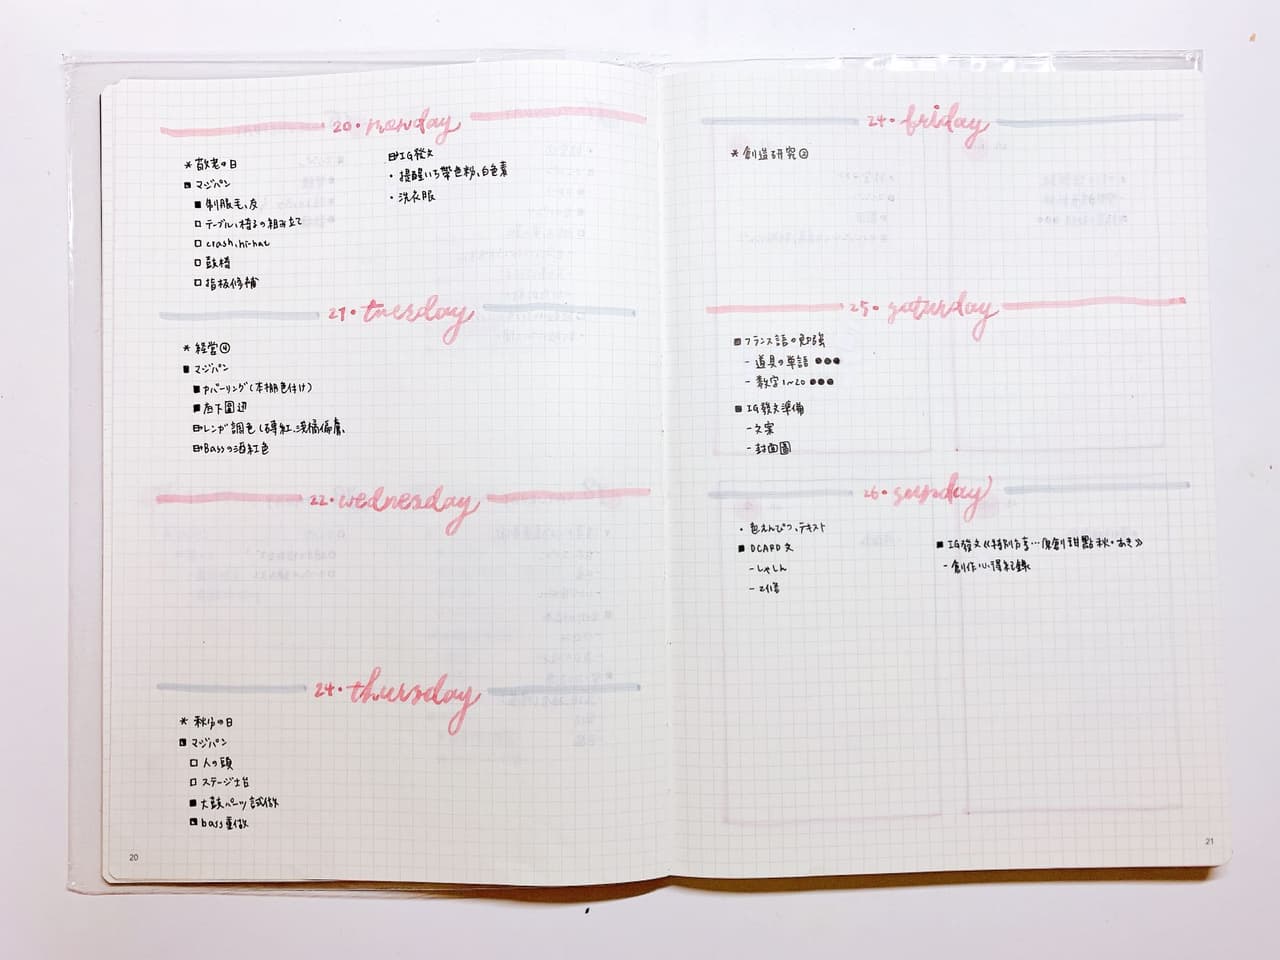 20・monday
* 敬老の日
マジパン
制服毛、皮
テーブル、椅子の組み立て
crash、hi-hat
鼓椅
指板修補
IG發文
・提醒いち帶色粉、白色素
・洗衣服
21・tuesday
* 経営④
マジパン
カバーリング(本棚色付け)
店下圍边
レンガ調色(磚紅、淺橘偏膚、
Bassの酒紅色
22・wednesday
24・thursday
* 秋分の日
マジパン
人の頭
ステージ土台
太鼓パーツ試做
bass重做
20
24・friday
* 創造研究②
25・saturday
フランス語の勉強
- 道具の單語 ●●●
- 数字1~20 ●●●
IG發文準備
- 文案
- 封面圖
26・sunday
・色えんぴつ、テキスト
DCARD文
- しゃしん
IG發文《特別分享…原創甜點 秋・あき》
- 創作心得紀錄
21